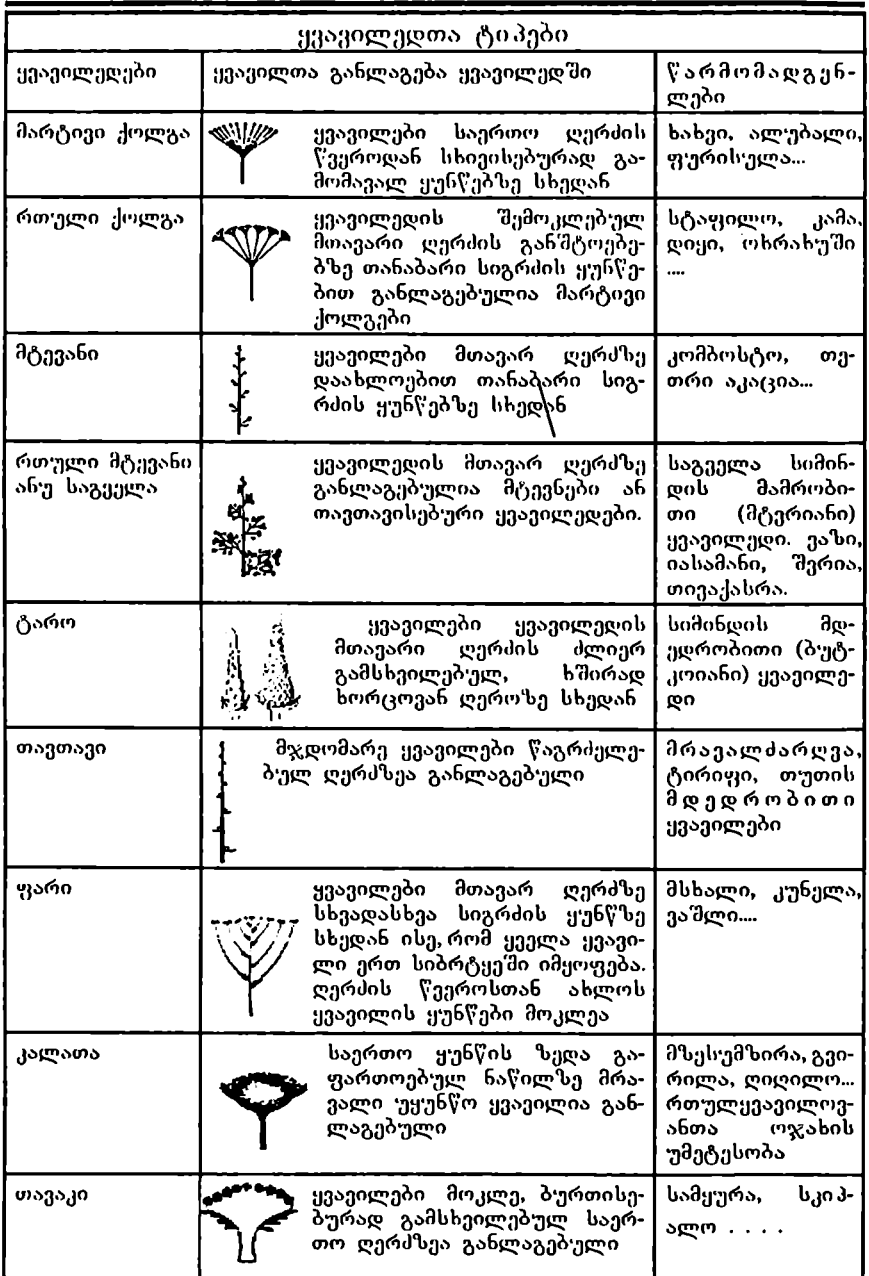 ყვავილედთა ტიპები
ყვავილედები
ყვავილთა განლაგება ყვავილედში
წარმომადგენ-
ლები
მარტივი ქოლგა
ყვავილები საერთო ღერძის
წვეროდან სხივისებურად გა-
მომავალ ყუნწებზე სხედან
ხახვი, ალუბალი,
ფურისულა...
რთული ქოლგა
ყვავილედის შემოკლებულ
მთავარი ღერძის განშტოებე-
ბზე თანაბარი სიგრძის ყუნწე-
ბით განლაგებულია მარტივი
ქოლგები
სტაფილო, კამა,
დიყი, ოხრახუში
....
მტევანი
ყვავილები მთავარ ღერძზე
დაახლოებით თანაბარი სიგ-
რძის ყუნწებზე სხედან
კომბოსტო, თე-
თრი აკაცია...
რთული მტევანი
ანუ საგველა
ყვავილედის მთავარ ღერძზე
განლაგებულია მტევნები ან
თავთავისებური ყვავილედები.
საგველა სიმინ-
დის მამრობი-
თი (მტვრიანი)
ყვავილედი. ვაზი,
იასამანი, შვრია,
თივაქასრა.
ტარო
ყვავილები ყვავილედის
მთავარი ღერძის ძლიერ
გამსხვილებულ, ხშირად
ხორცოვან ღეროზე სხედან
სიმინდის მდ-
ედრობითი (ბუტ-
კოიანი) ყვავილე-
დი
თავთავი
მჯდომარე ყვავილები წაგრძელე-
ბულ ღერძზეა განლაგებული
მრავალძარღვა,
ტირიფი, თუთის
მდედრობითი
ყვავილები
ფარი
ყვავილები მთავარ ღერძზე
სხვადასხვა სიგრძის ყუნწზე
სხედან ისე, რომ ყველა ყვავი-
ლი ერთ სიბრტყეში იმყოფება.
ღერძის წვეროსთან ახლოს
ყვავილის ყუნწები მოკლეა
მსხალი, კუნელა,
ვაშლი....
კალათა
საერთო ყუნწის ზედა გა-
ფართოებულ ნაწილზე მრა-
ვალი უყუნწო ყვავილია გან-
ლაგებული
მზესუმზირა, გვი-
რილა, ღიღილო...
რთულყვავილოვ-
ანთა ოჯახის
უმეტესობა
თავაკი
ყვავილები მოკლე, ბურთისე-
ბურად გამსხვილებულ საერ-
თო ღერძზეა განლაგებული
სამყურა, სკიპ-
ალო . . . .